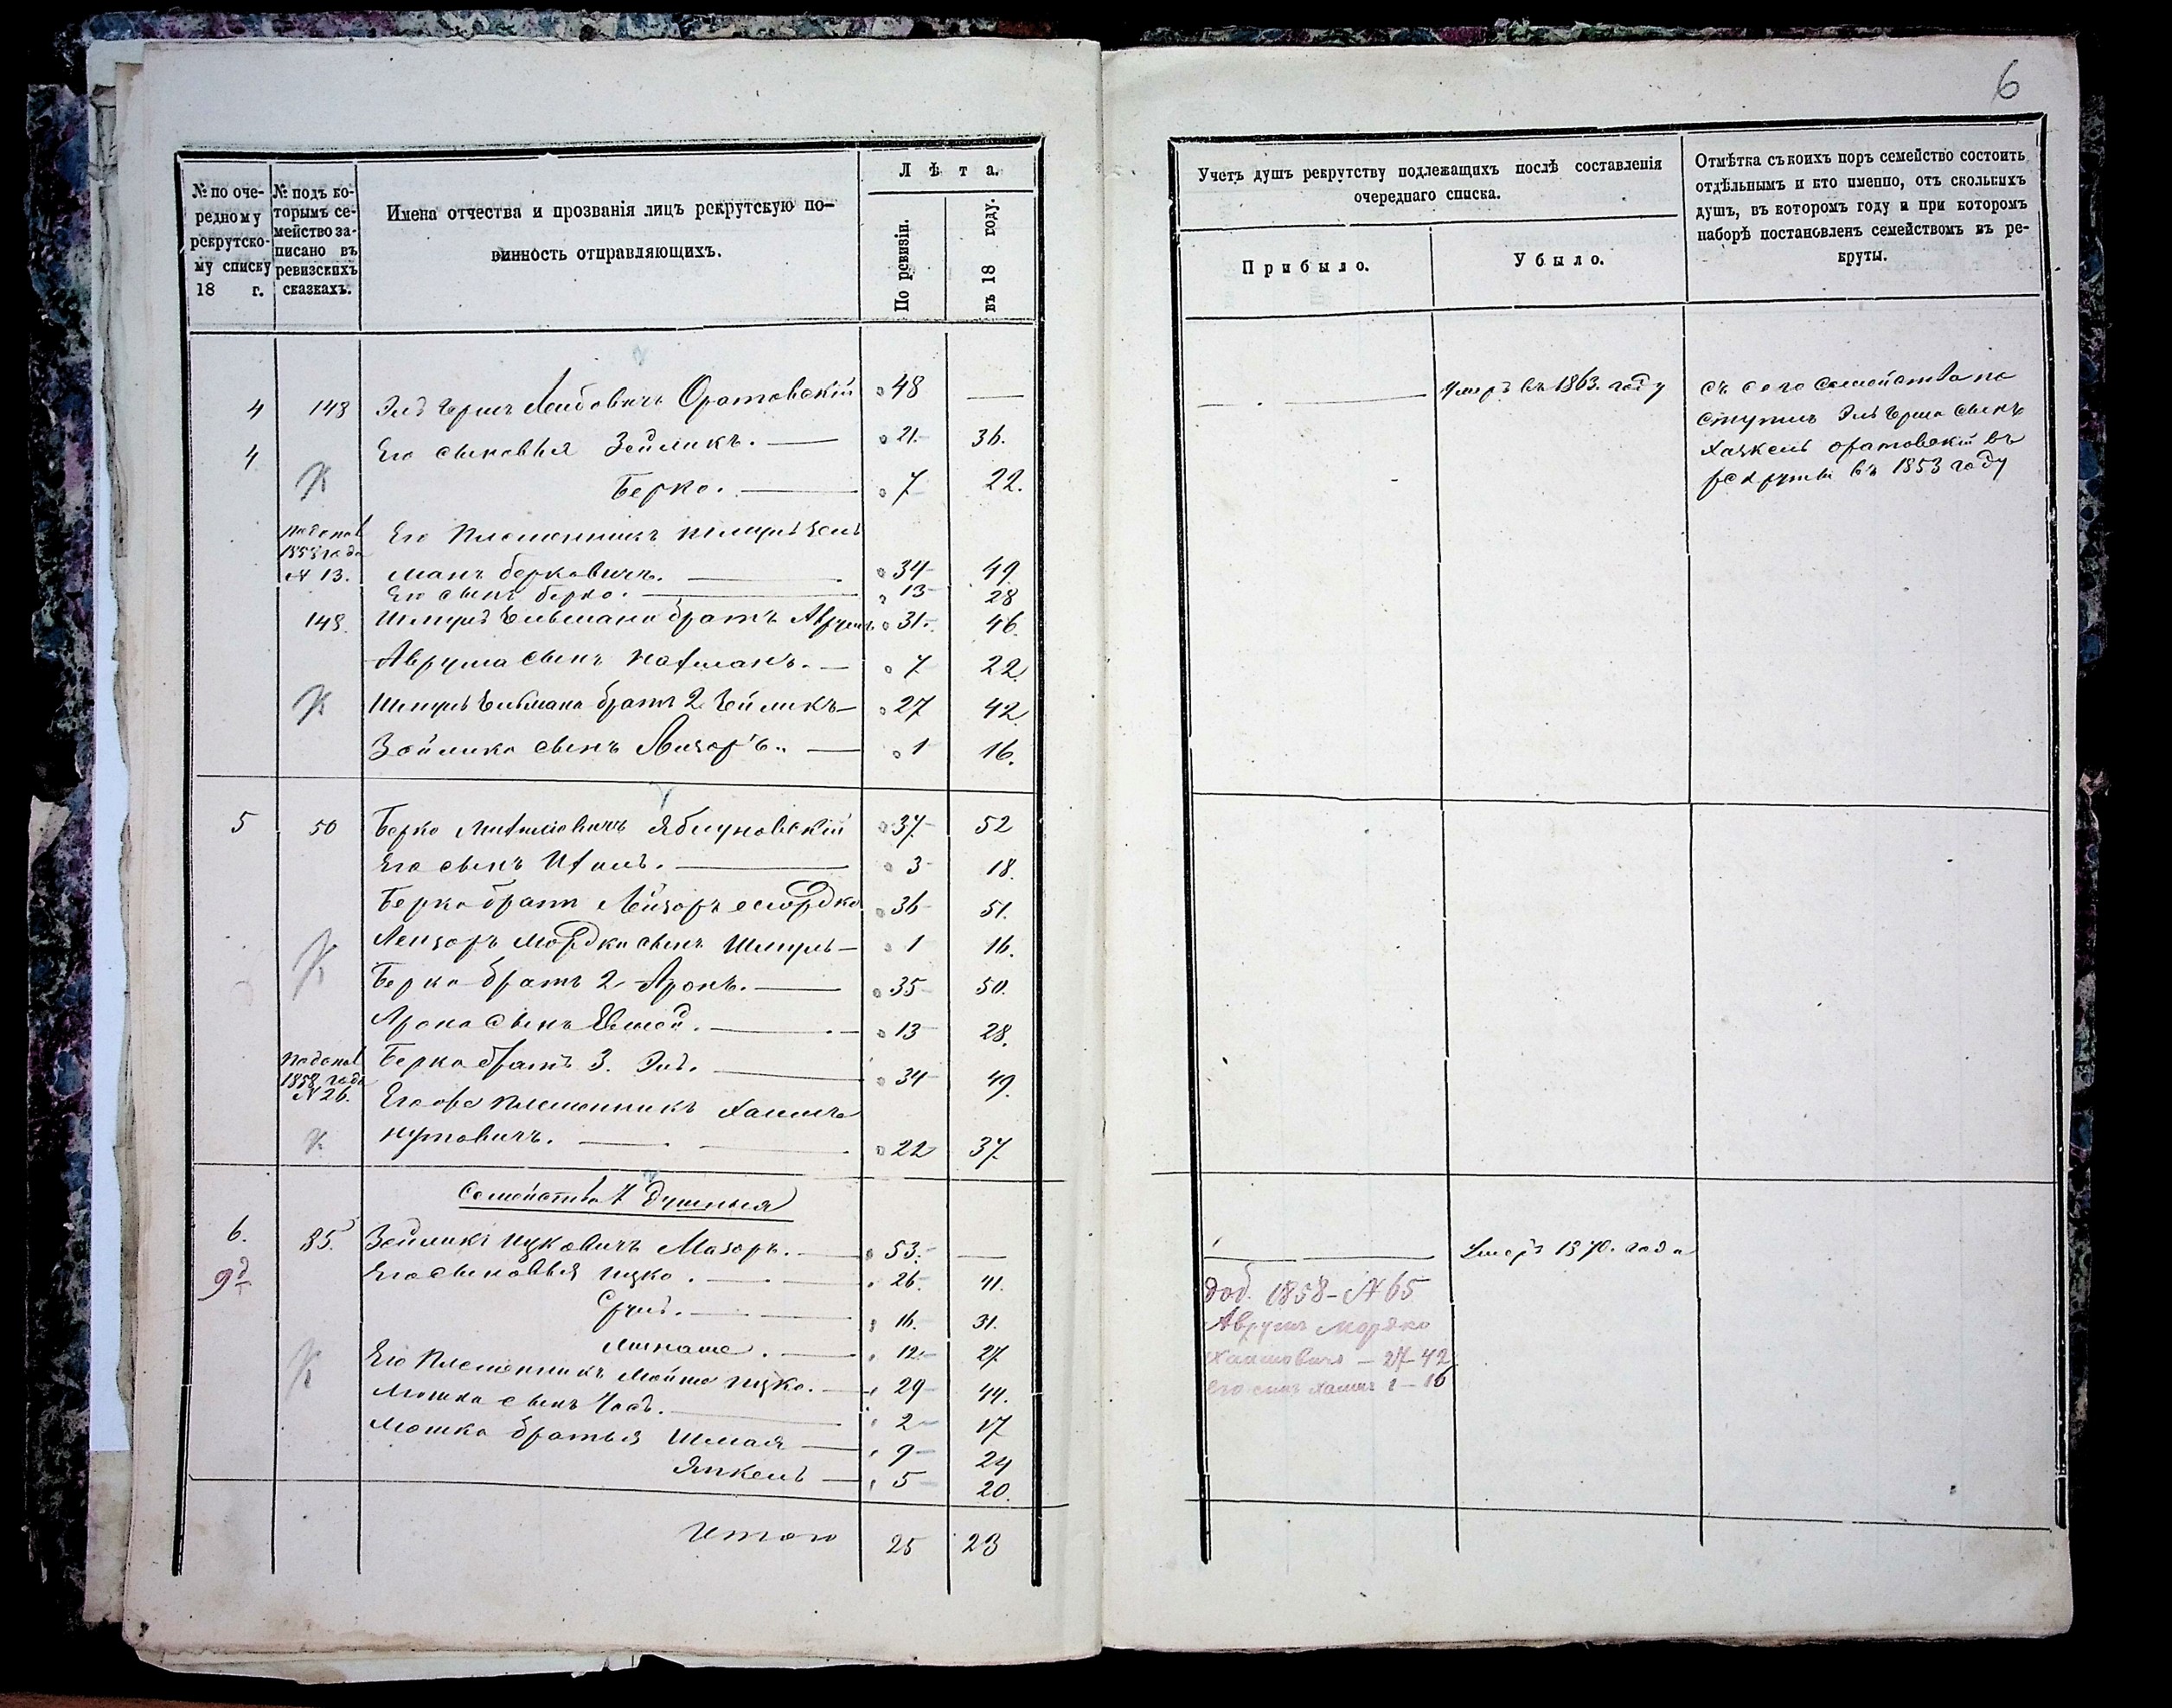 6
№ по оче-
редному
рекрутско-
му списку
18 г.
№ подъ ко-
торымъ се-
мейство за-
писано въ
ревизскихъ
сказкахъ.
Имена отчества и прозванія лицъ рекрутскую по-
винность отправляющихъ.
Лѣта.
По ревизіи.
въ 18 году.
Учетъ душъ рекрутству подлежащихъ послѣ составленія
очереднаго списка.
Прибыло.
Убыло.
Отмѣтка съ коихъ поръ семейство состоитъ
отдѣльнымъ и кто именно, отъ сколькихъ
душъ, въ которомъ году и при которомъ
наборѣ постановленъ семействомъ въ ре-
круты.
4 148 Эль Гершъ Лейбовичъ Оратовскій 48 —
4 Его сыновья Зейликъ. — 21. 36.
Берко. — 7 22.
1858 года
N 13.
Его Племянникъ Шмуль Зель
манъ Берковичъ. — 34 49
Его сынъ Берко. — 13 28
148. Шмуль Зельмана братъ Аврумъ 31. 46.
Аврума сынъ Нафманъ. — 7 22.
Шмуль Зельмана братъ 2 Зейликъ — 27 42.
Зейлика сынъ Лизоръ. — 1 16.
Умеръ въ 1863. году
Съ сего семейства по
ступилъ Эль Герша сынъ
Хацкель Оратовскій въ
рекруты въ 1853 году
5 50 Берко Яблуновскій 37 52
Его сынъ — 3 18.
Берка братъ Лейзоръ Мордко 36 51.
Лейзоръ Мордки сынъ Шмуль — 1 16.
Берка братъ 2 Аронъ. — 35 50.
Арона сынъ — 13 28.
1858 года
N 26.
Берка братъ 3. Эль. — 34 49.
Его же Племянникъ Хаимъ
Нутовичъ. — 22 37
Семейства 7 душныя
6. 85. Зейликъ Ицковичъ Мазоръ. — 53. —
9 Его сыновья Ицко. — 26. 41.
Сруль. — 16. 31.
Минаше. — 12. 27
Его Племянникъ Мошко Ицко. — 29 44.
Мошка сынъ — 2 17
Мошка братья Шмая — 9 24
Янкель — 5 20.
Умеръ 1870. года
доб. 1858 - N 65
Аврумъ Мордко
Хаимовичъ — 27 42
его сынъ Хаимъ 1 — 16
Итого 25 23